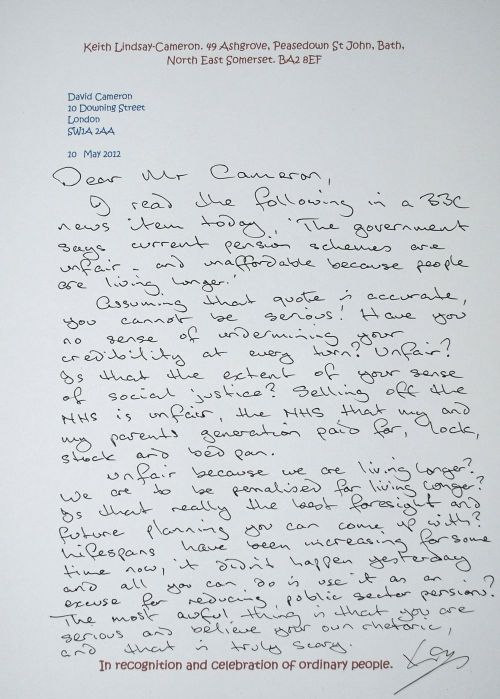 Keith Lindsay-Cameron. 49 Ashgrove, Peasedown St John, Bath,
North East Somerset. BA2 8EF
David Cameron
10 Downing Street
London
SW1A 2AA
10 May 2012
Dear Mr Cameron,
I read the following in a BBC
news item today, 'The government
says current pension schemes are
unfair - and unaffordable because people
are living longer.'
Assuming that quote is accurate,
you cannot be serious! Have you
no sense of undermining your
credibility at every turn? Unfair?
Is that the extent of your sense
of social justice? Selling off the
NHS is unfair, the NHS that my and
my parents generation paid for, lock,
stock and bed pan.
Unfair because we are living longer?
We are to be penalised for living longer?
Is that really the best foresight and
future planning you can come up with?
Lifespans have been increasing for some
time now, it didn't happen yesterday
and all you can do is use it as an
excuse for reducing public sector pensions?
The most awful thing is that you are
serious and believe your own rhetoric,
and that is truly scary.
In recognition and celebration of ordinary people.